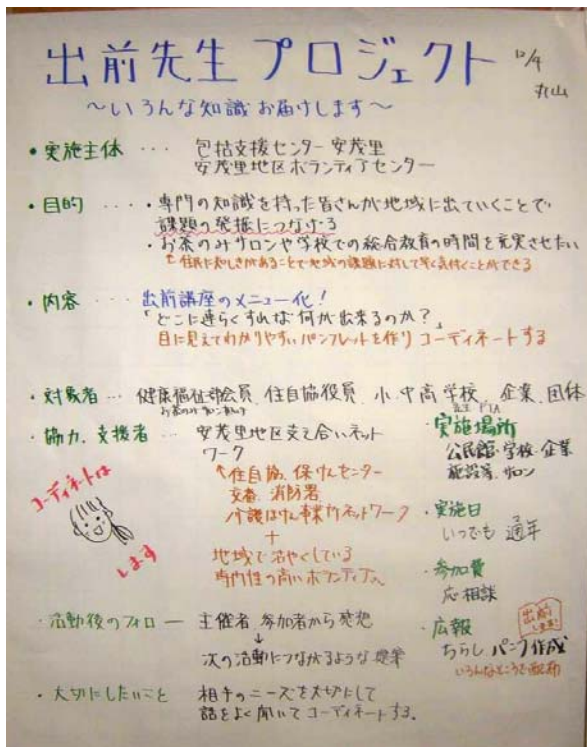 出前先生プロジェクト
12/9
丸山
〜いろんな知識お届けします〜
・実施主体 … 包括支援センター安茂里
安茂里地区ボランティアセンター
・目的 … ・専門の知識を持った皆さんが地域に出ていくことで
課題の発掘につなげる
・お茶のみサロンや学校での総合教育の時間を充実させたい
住民に知しきがあることで地域の課題に対して早く気付くことができる
・内容 … 出前講座のメニュー化!
「どこに連らくすれば何が出来るのか?」
目に見えてわかりやすいパンフレットを作りコーディネートする
・対象者 … 健康福祉部会員、住自協役員、小、中高学校、企業、団体
先生 PTA
・協力、支援者 … 安茂里地区支え合いネット
ワーク
↑住自協、保けんセンター
交番、消防署
介護ほけん事業所ネットワーク
+
地域で活やくしている
専門性の高いボランティアさん
コーディネートは
します
・実施場所
公民館・学校・企業
施設等、サロン
・実施日
いつでも 通年
・参加費
応相談
・広報
出前します!
ちらし パンフ作成
いろんなところで配布
・活動後のフォロー 主催者、参加者から発想
↓
次の活動につながるような提案
・大切にしたいこと 相手のニーズを大切にして
話をよく聞いてコーディネートする。